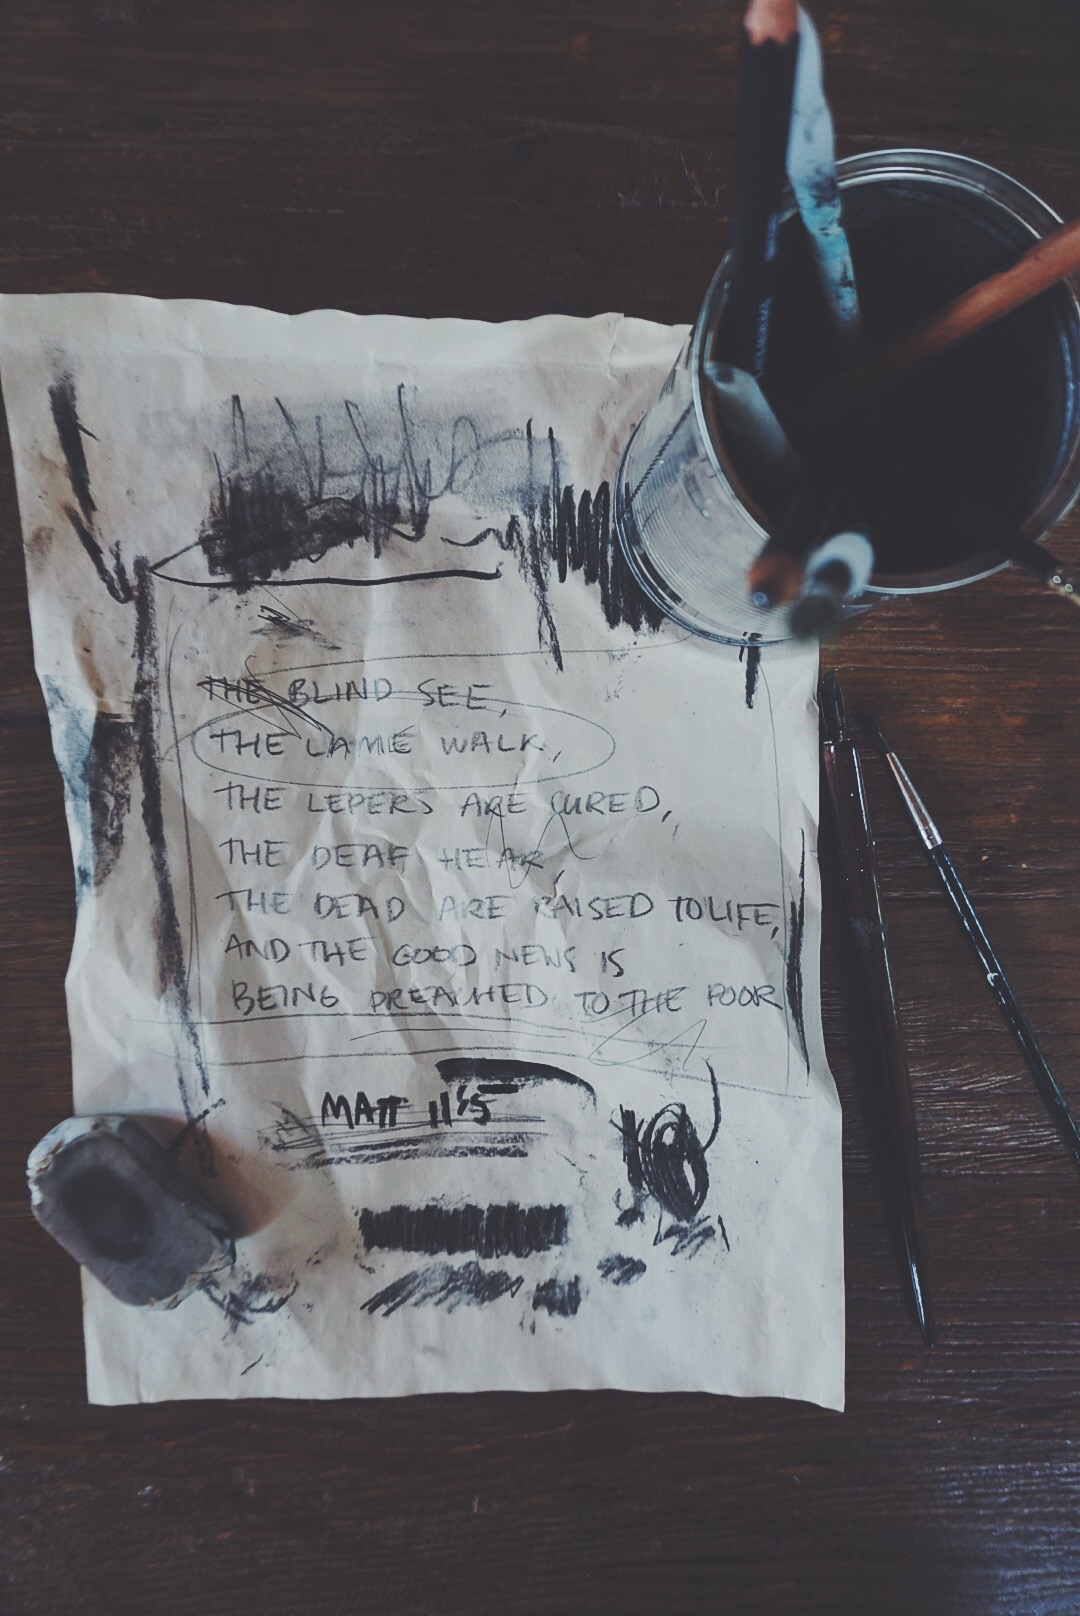 THE BLIND SEE,
THE LAME WALK,
THE LEPERS ARE CURED,
THE DEAF HEAR,
THE DEAD ARE RAISED TO LIFE,
AND THE GOOD NEWS IS
BEING PREACHED TO THE POOR
MATT 11:5